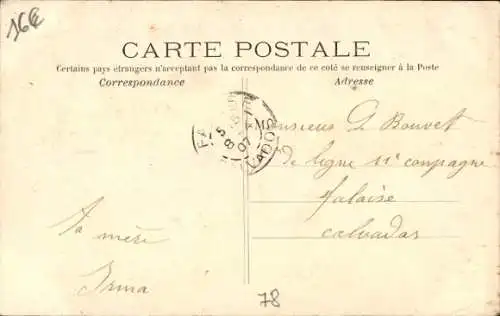 16€
CARTE POSTALE
Certains pays étrangers n'acceptant pas la correspondance de ce coté se renseigner à la Poste
Correspondance
Adresse
Monsieur G Bouvet
de ligne 11e conpagne
falaise
calvados
ta mère
Irma
78